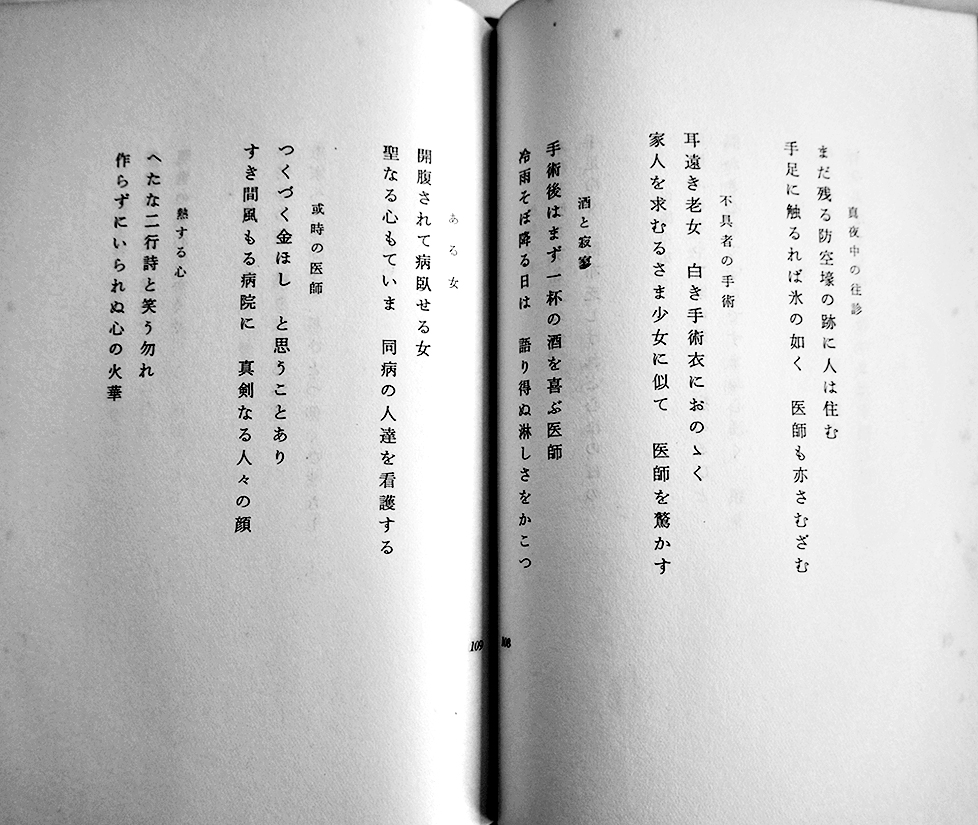 真夜中の往診
まだ残る防空壕の跡に人は住む
手足に触るれば氷の如く　医師も亦さむざむ
不具者の手術
耳遠き老女　白き手術衣におのゝく
家人を求むるさま少女に似て　医師を驚かす
酒と寂寥
手術後はまず一杯の酒を喜ぶ医師
冷雨そぼ降る日は　語り得ぬ淋しさをかこつ
108
ある女
開腹されて病臥せる女
聖なる心もていま　同病の人達を看護する
或時の医師
つくづく金ほし　と思うことあり
すき間風もる病院に　真剣なる人々の顔
熱する心
へたな二行詩と笑う勿れ
作らずにいられぬ心の火華
109